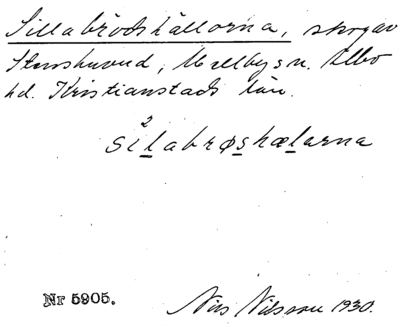 Sillabrödshällorna, skogav
Stenshuvud, Mellby sn. Albo
hd. Kristianstads län.
2
silabrøshælarna
Nr 5905.
Nils Nilsson 1930.